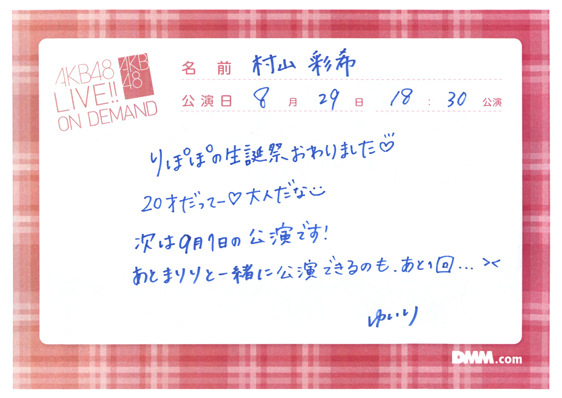 AKB48
LIVE!!
ON DEMAND
AKB
48
名前 村山 彩希
公演日 8月29日 18:30公演
りぽぽの生誕祭おわりました♡
20才だってー♡大人だな
次は9月1日の公演です!
あとまりりと一緒に公演できるのも、あと1回...><
ゆいり
DMM.com